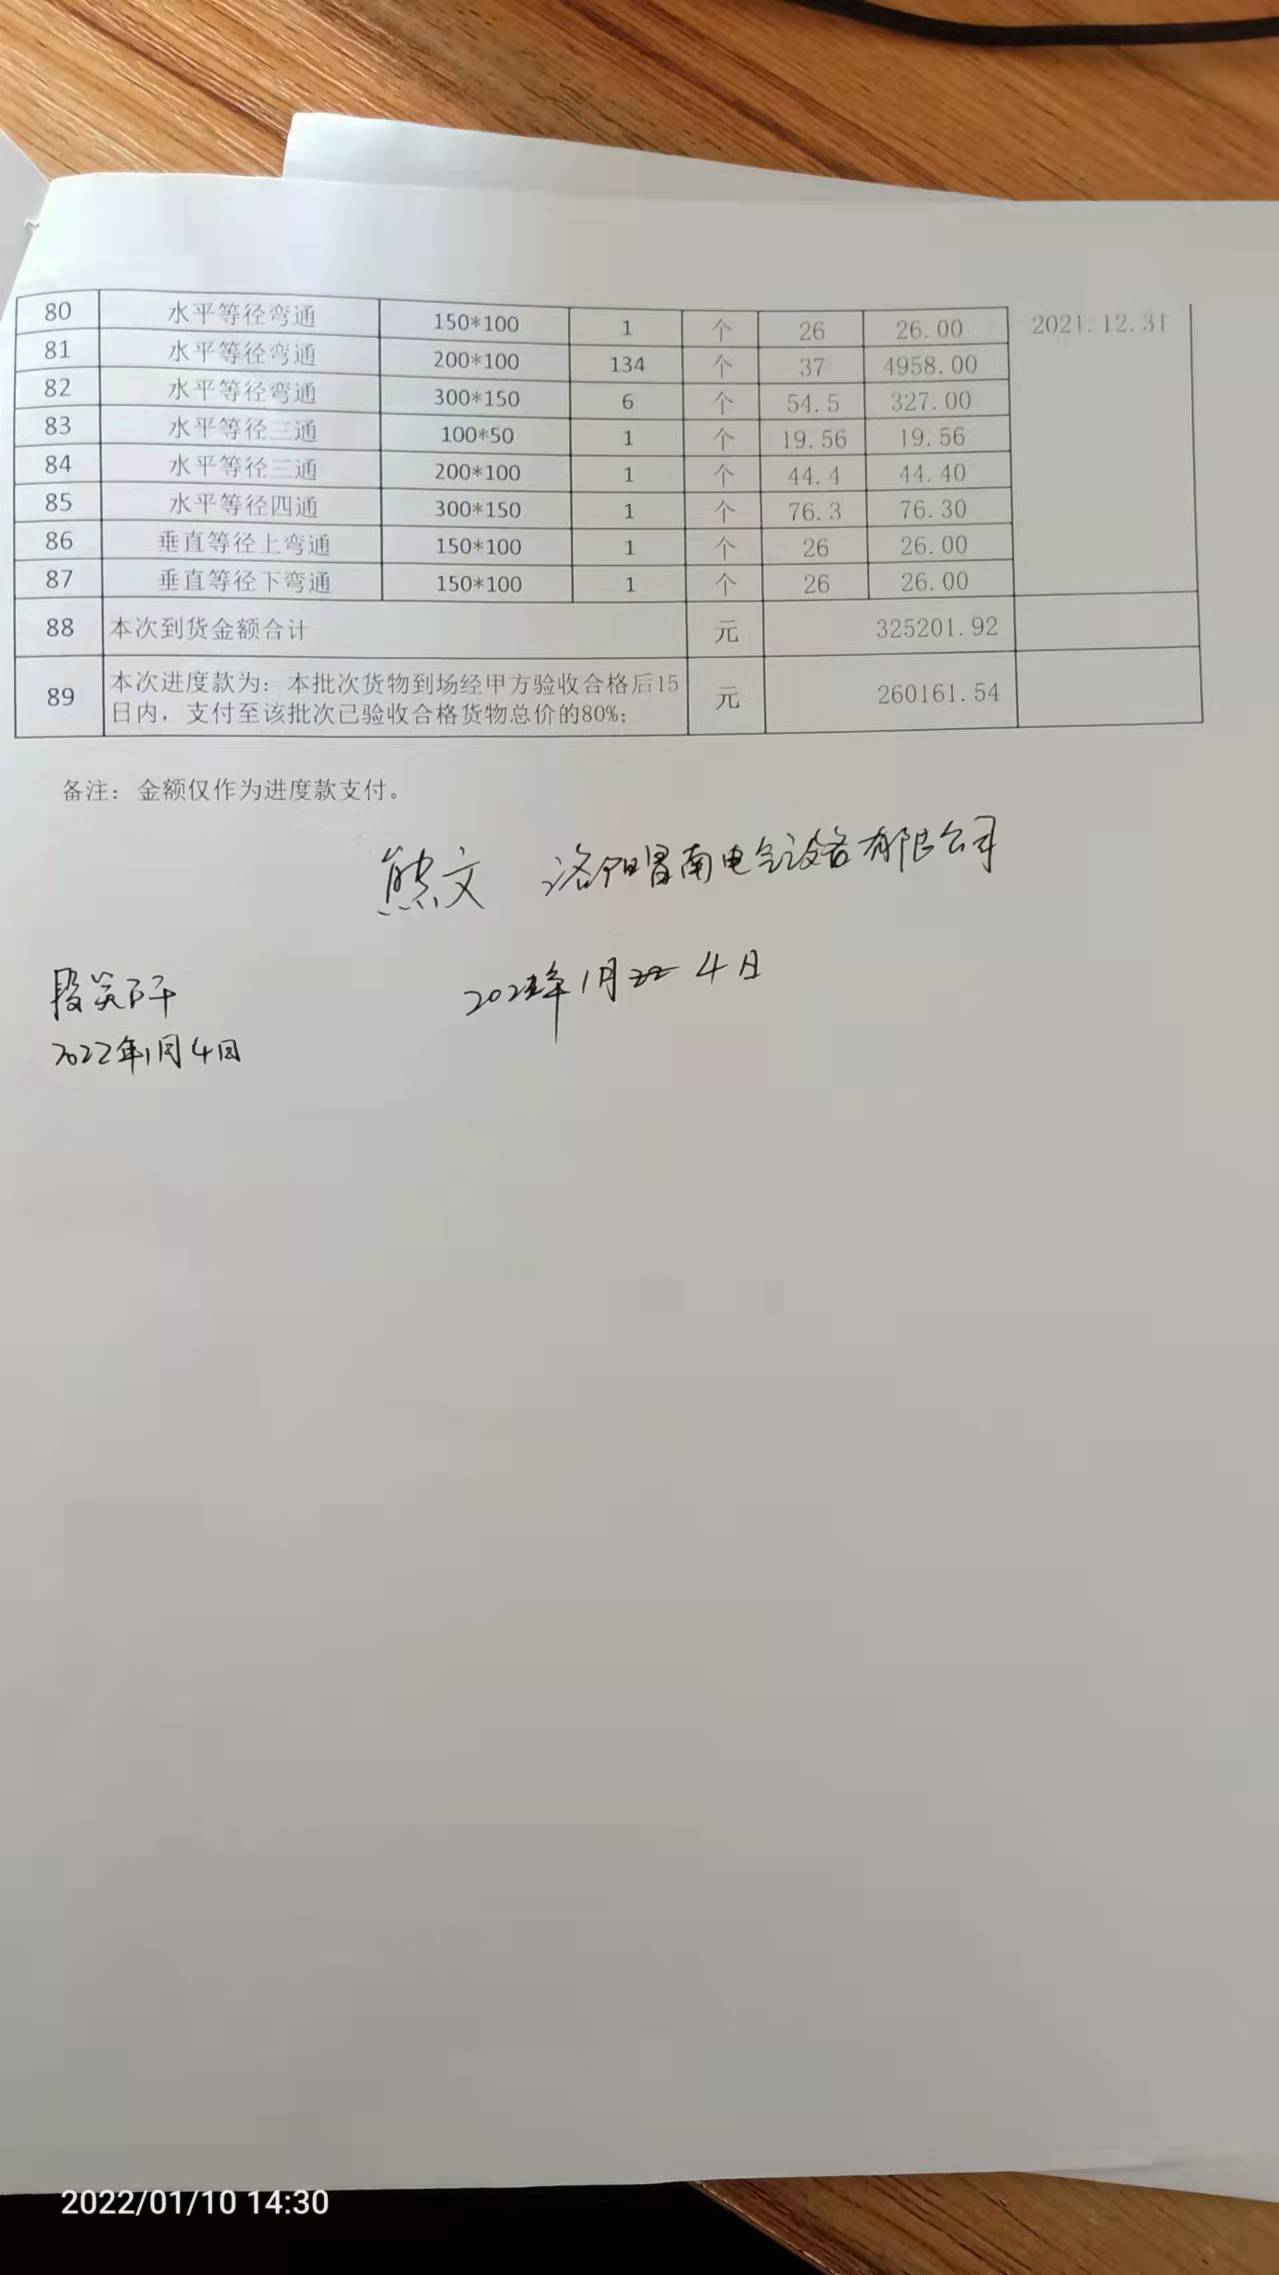 80 水平等径弯通 150*100 1 个 26 26.00 2021.12.31
81 水平等径弯通 200*100 134 个 37 4958.00
82 水平等径弯通 300*150 6 个 54.5 327.00
83 水平等径三通 100*50 1 个 19.56 19.56
84 水平等径三通 200*100 1 个 44.4 44.40
85 水平等径四通 300*150 1 个 76.3 76.30
86 垂直等径上弯通 150*100 1 个 26 26.00
87 垂直等径下弯通 150*100 1 个 26 26.00
88 本次到货金额合计 元 325201.92
89 本次进度款为：本批次货物到场经甲方验收合格后15 元 260161.54
日内，支付至该批次已验收合格货物总价的80%；
备注：金额仅作为进度款支付。
熊文 洛阳冒南电气设备有限公司
段
2022年1月4日
2022年1月4日
2022/01/10 14:30